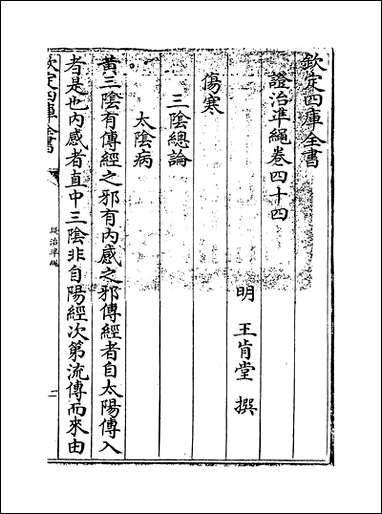 欽定四庫全書
證治準繩卷四十四
明 王肯堂 撰
傷寒
三陰總論
太陰病
黄三陰有傳經之邪有内感之邪傳經者自太陽傳入
者是也内感者直中三陰非自陽經次第流傳而來由
欽定四庫全書
證治準繩